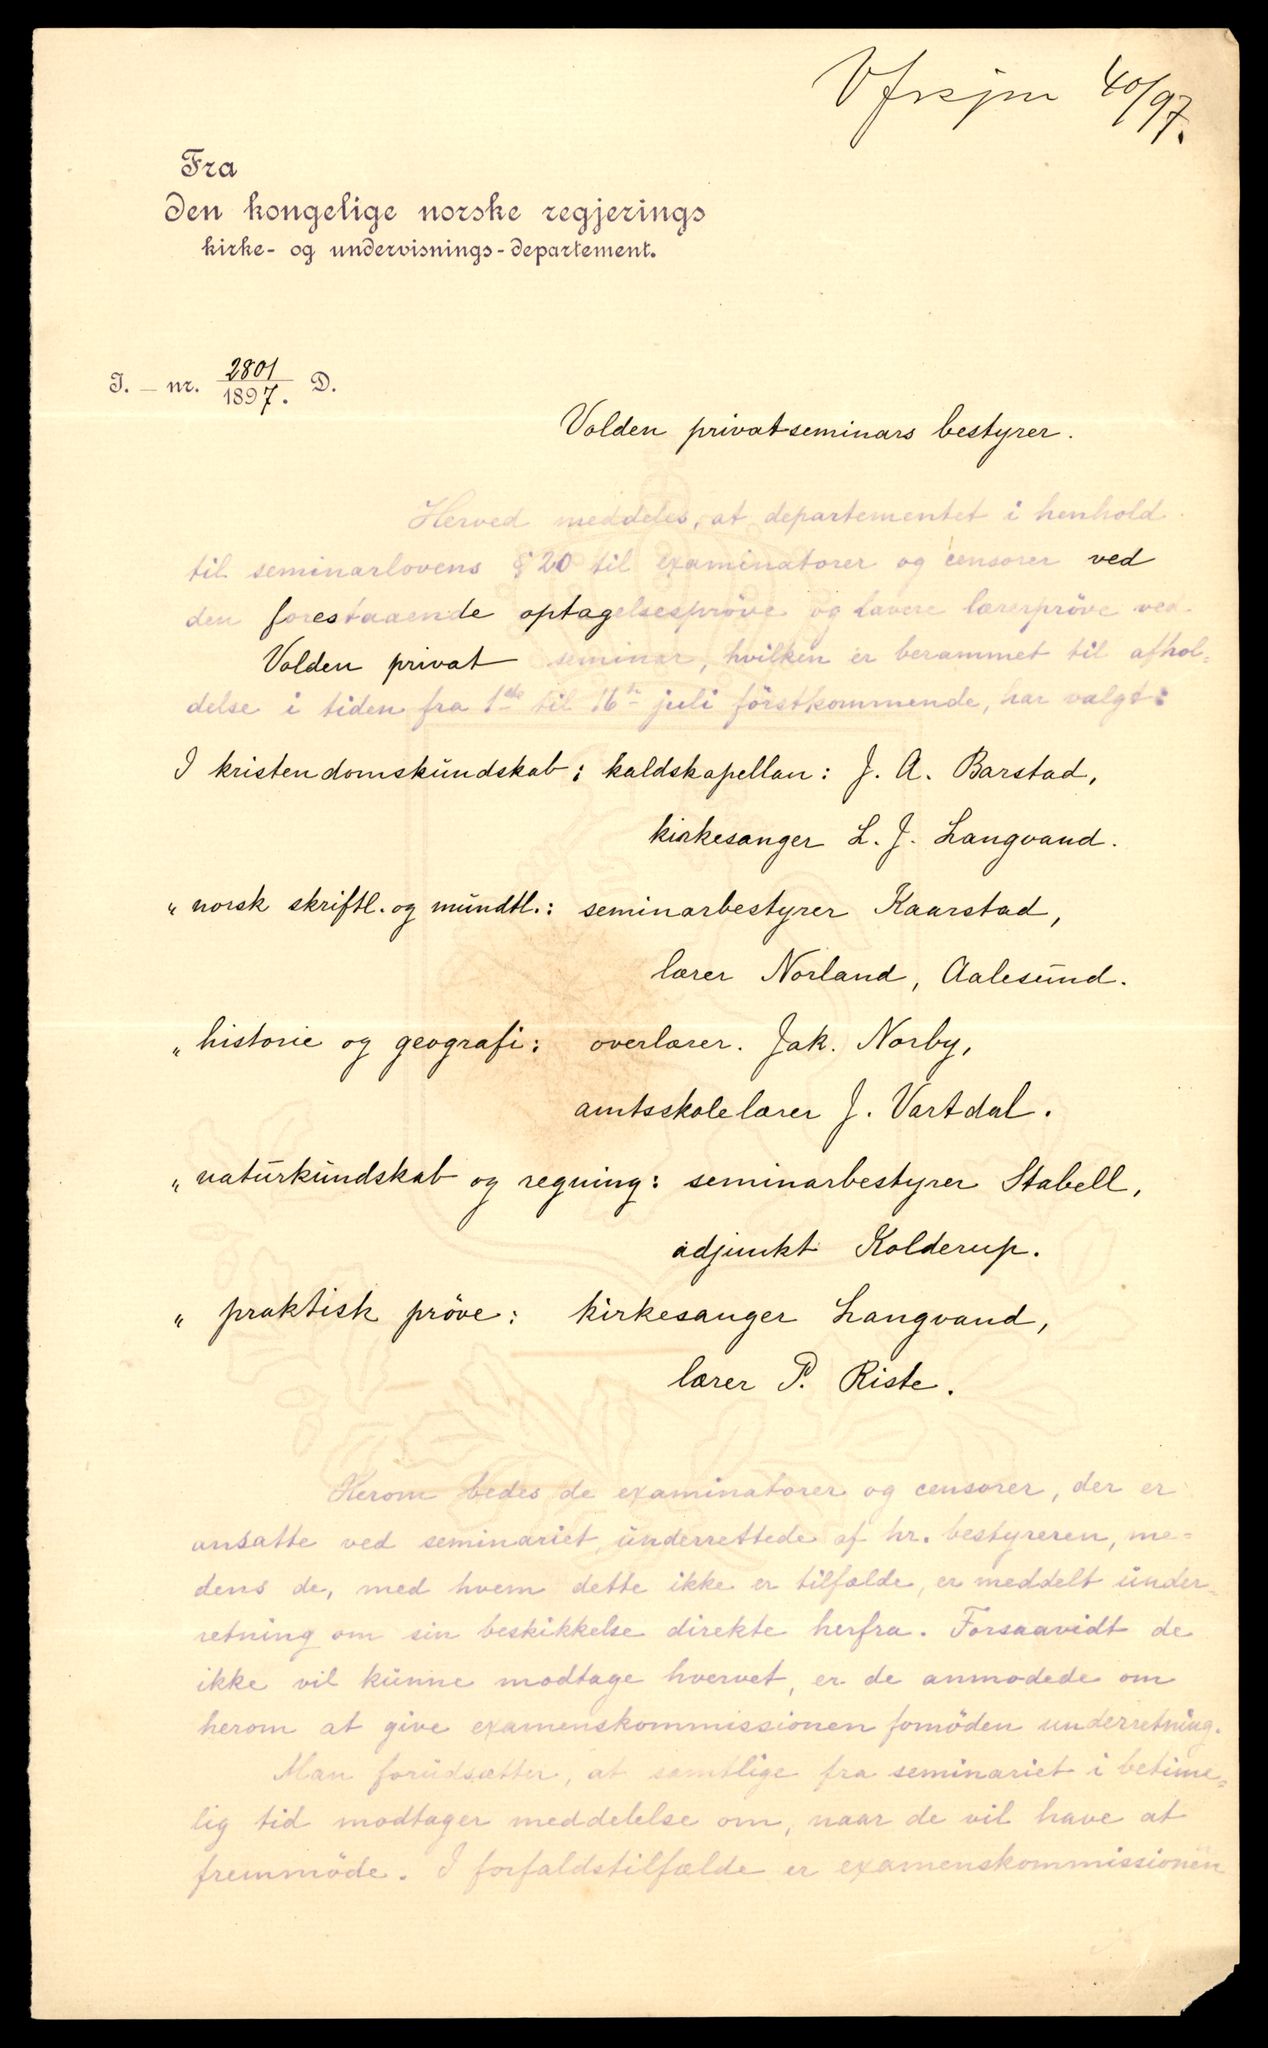 40/97.
Fra
den kongelige norske regjerings
kirke- og undervisnings-departement.
J. - nr. 2801/1897. D.
Volden privatseminars bestyrer.
Herved meddeles, at departementet i henhold
til seminarlovens § 20 til examinatorer og censorer ved
den forestaaende optagelsesprøve og lavere lærerprøve ved
Volden privat seminar, hvilken er berammet til afhol-
delse i tiden fra 1ste til 16de juli förstkommende, har valgt:
I kristendomskundskab: kaldskapellan: J. A. Barstad,
kirkesanger L. J. Langvand.
" norsk skriftl. og mundtl.: seminarbestyrer Kaarstad,
lærer Norland, Aalesund.
" historie og geografi: overlærer. Jak. Norby,
amtsskolelærer J. Vartdal.
" naturkundskab og regning: seminarbestyrer Stabell,
adjunkt Kolderup.
" praktisk pröve: kirkesanger Langvand,
lærer P. Riste.
Herom bedes de examinatorer og censorer, der er
ansatte ved seminariet, underrettede af hr. bestyreren, me-
dens de, med hvem dette ikke er tilfælde, er meddelt under-
retning om sin beskikkelse direkte herfra. Forsaavidt de
ikke vil kunne modtage hvervet, er de anmodede om
herom at give examenskommissionen fornöden underretning.
Man forudsætter, at samtlige fra seminariet i betime-
lig tid modtager meddelelse om, naar de vil have at
fremmöde. I forfaldstilfælde er examenskommissionen